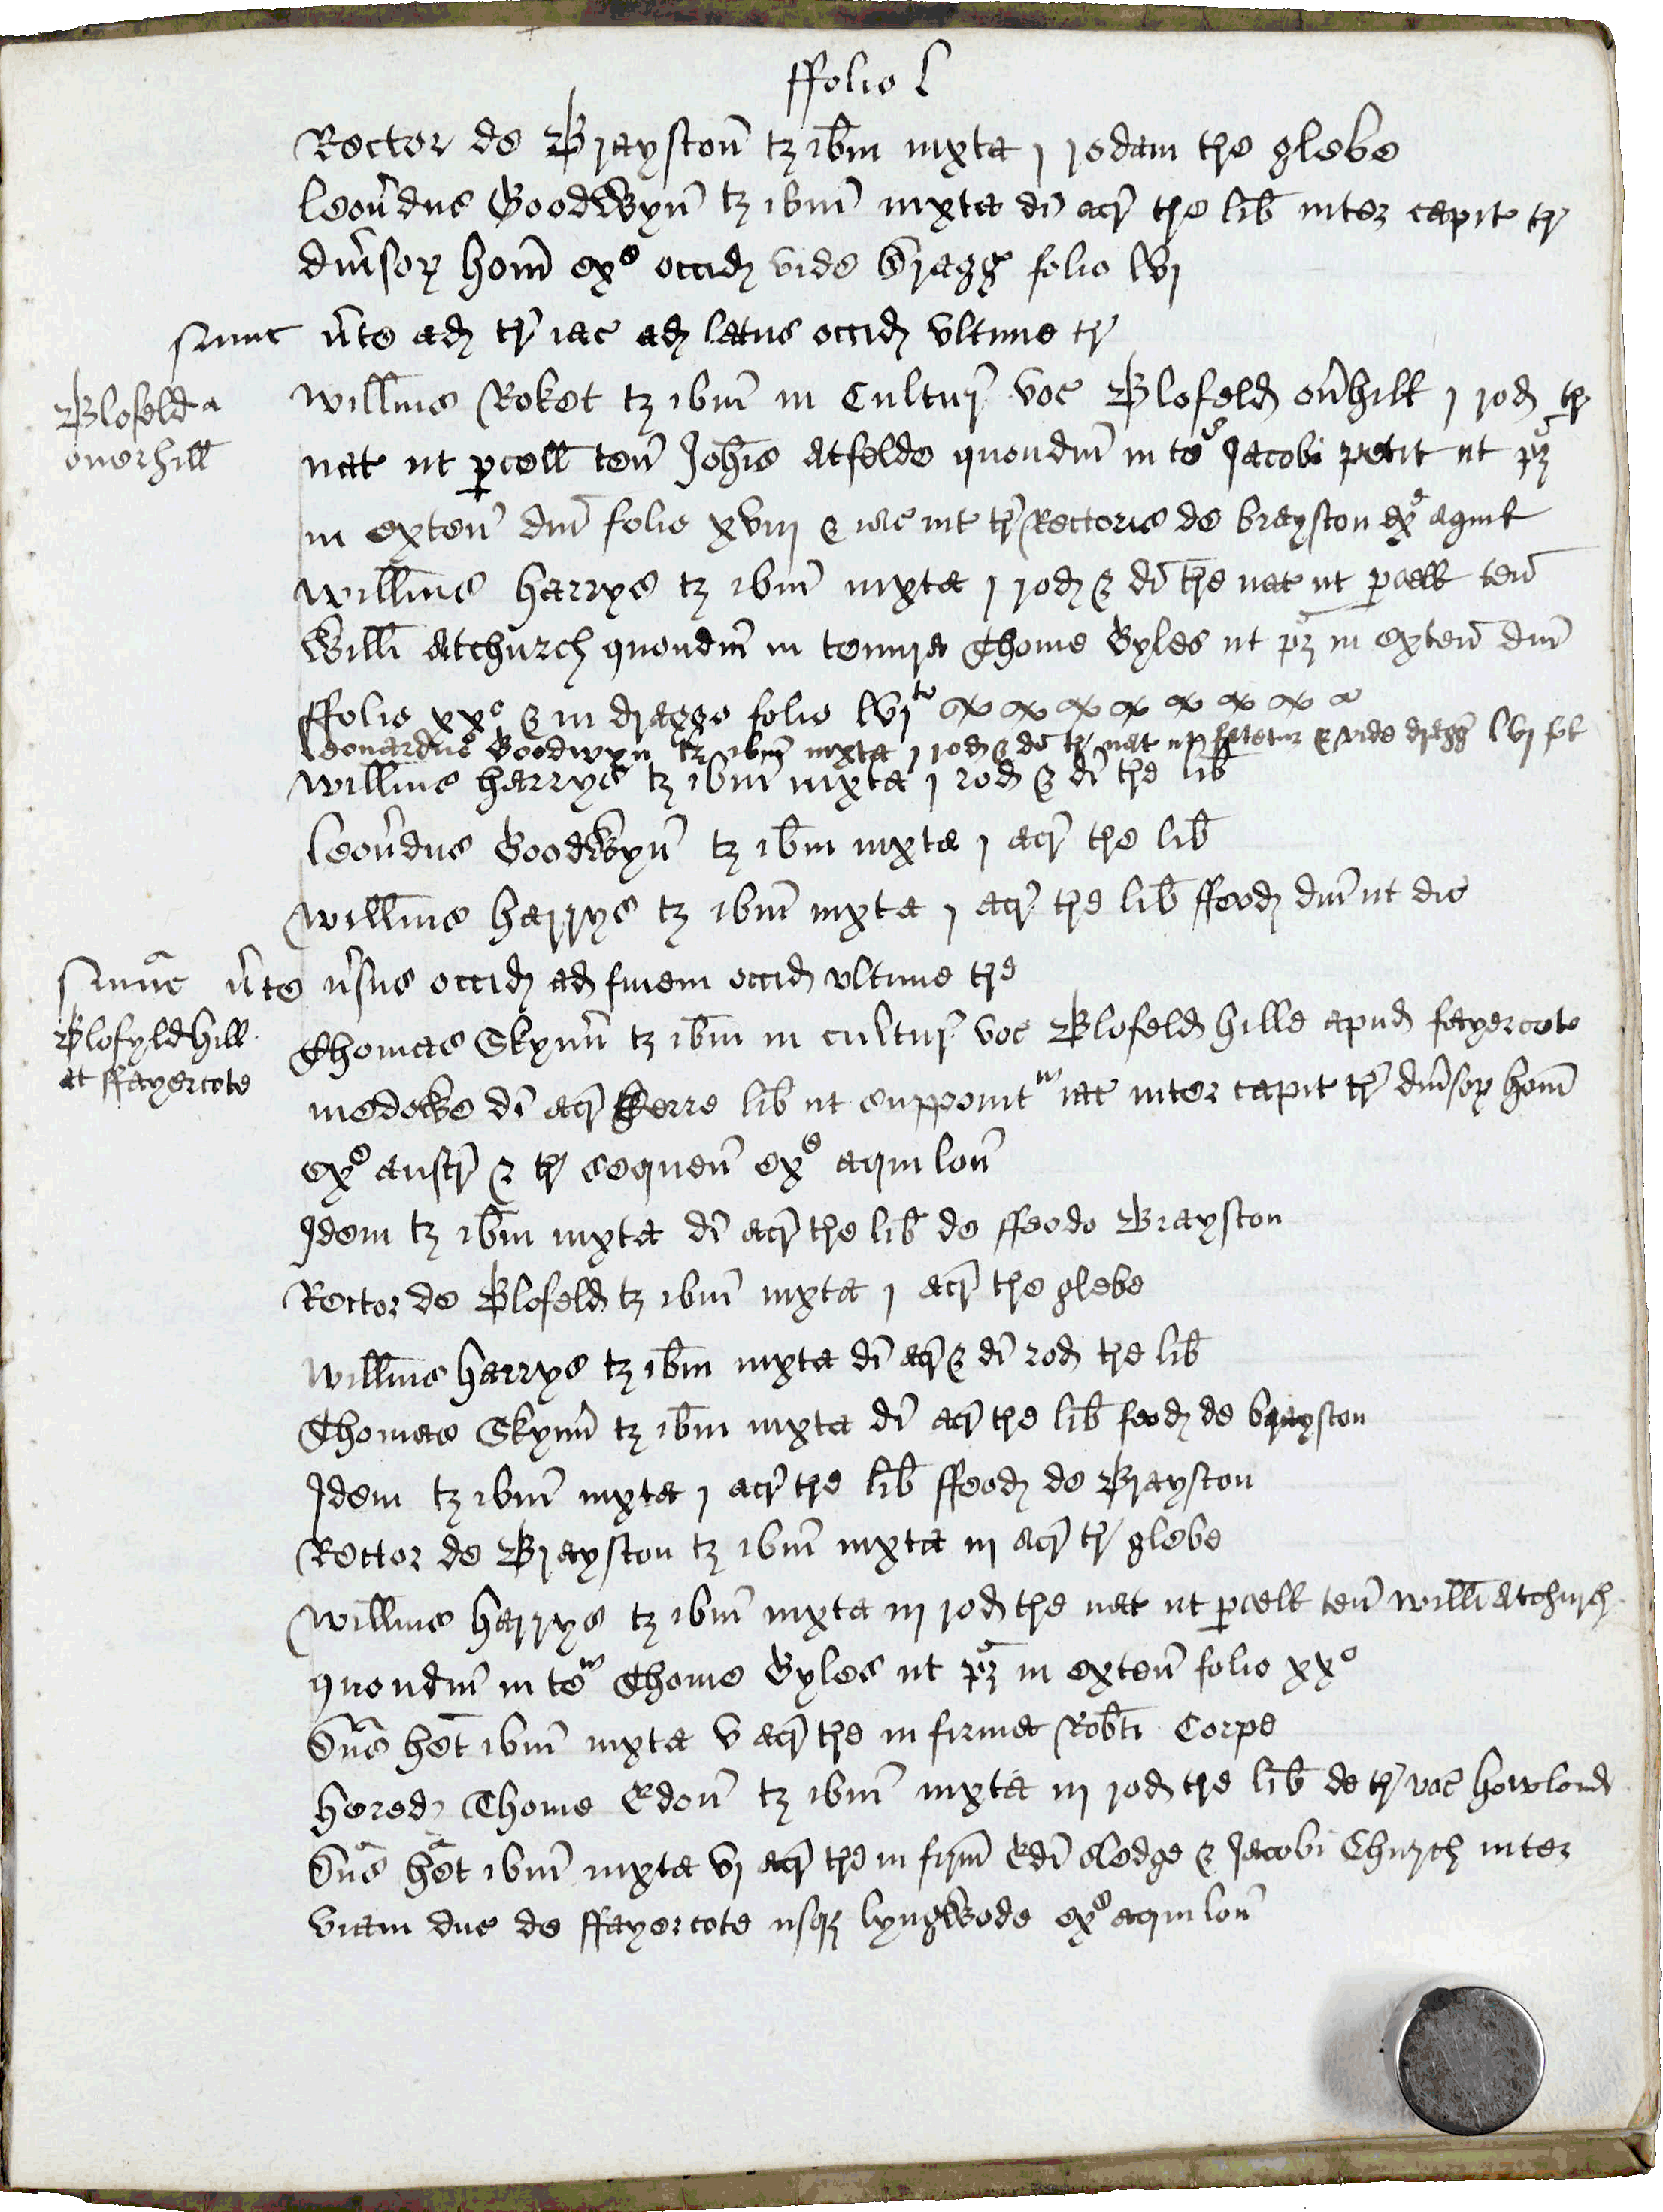 ffolio l
Rector de Brayston tz ibm iuxta j rodam tre glebe
Leon̄dus Goodwyn tz ibm iuxta di acr tre lib inter capit tr
diu̾sor hom̄ ex ᵉ occid vide dragg folio lvj
nunc ūte ad tr iac ad latus occid vltime tr
Blofeld a
ouerhill
Willm̄s Roket tz ibm in Cultur voc Blofeld ou̾hill j rod tr
nat ut pcell ten Joh̄is Atfelde quondm̄ in teᵃ Jacobi petit ut pz
in exten dni folio xviij & iac int tr Rectoris de brayston exᵉ aquil
Willm̄s harrys tz ibm iuxta j rod & di tre nat ut pcell ten
Willi Atchurch quondm̄ in tenura Thome Gyles ut pz in exten dni
ffolio xxº & in dragge folio lvjᵗᵒ
Leonardus Goodwyn tz ibm iuxta j rod & di tr nat ut fatetur & vide dragg lvj fol
Willm̄s harrys tz ibm iuxta j rod & di tre lib
Leon̄dus Goodwyn tz ibm iuxta j acr tre lib
Willm̄s harrys tz ibm iuxta j acr tre lib ffeod dni ut dic
nunc ūte u̾sus occid ad finem occid vltime tre
Blofyldhill
at ffayercote
Thomas Skynn̄ tz ibm in cultur voc Blofeld hille apud fayercote
medowe di acr terre lib ut supponit iac inter capit tr diu̾sor hom̄
exᵉ austr & tr sequen exᵉ aquilon
Idem tz ibm iuxta di acr tre lib de ffeodo Brayston
Rector de Blofeld tz ibm iuxta j acr tre glebe
Willm̄s harrys tz ibm iuxta di acr & di rod tre lib
Thomas Skynn̄ tz ibm iuxta di acr tre lib feod de brayston
Idem tz ibm iuxta j acr tre lib ffeod de Brayston
Rector de Brayston tz ibm iuxta iij acr tr glebe
Willm̄s harrys tz ibm iuxta iij rod tre nat ut pcell ten willi Atchurch
quondm̄ in teᵃ Thome Gyles ut pz in exten folio xxº
Dn̄s het ibm iuxta v acr tre in firma Robti Corpe
hered Thome Edon tz ibm iuxta iij rod tre lib de tr voc howlond
Dn̄s het ibm iuxta vj acr tre in firm̄ Edi Sledge & Jacobi Church inter
viam duc de ffayercote usqz lyngwode exᵉ aquilon